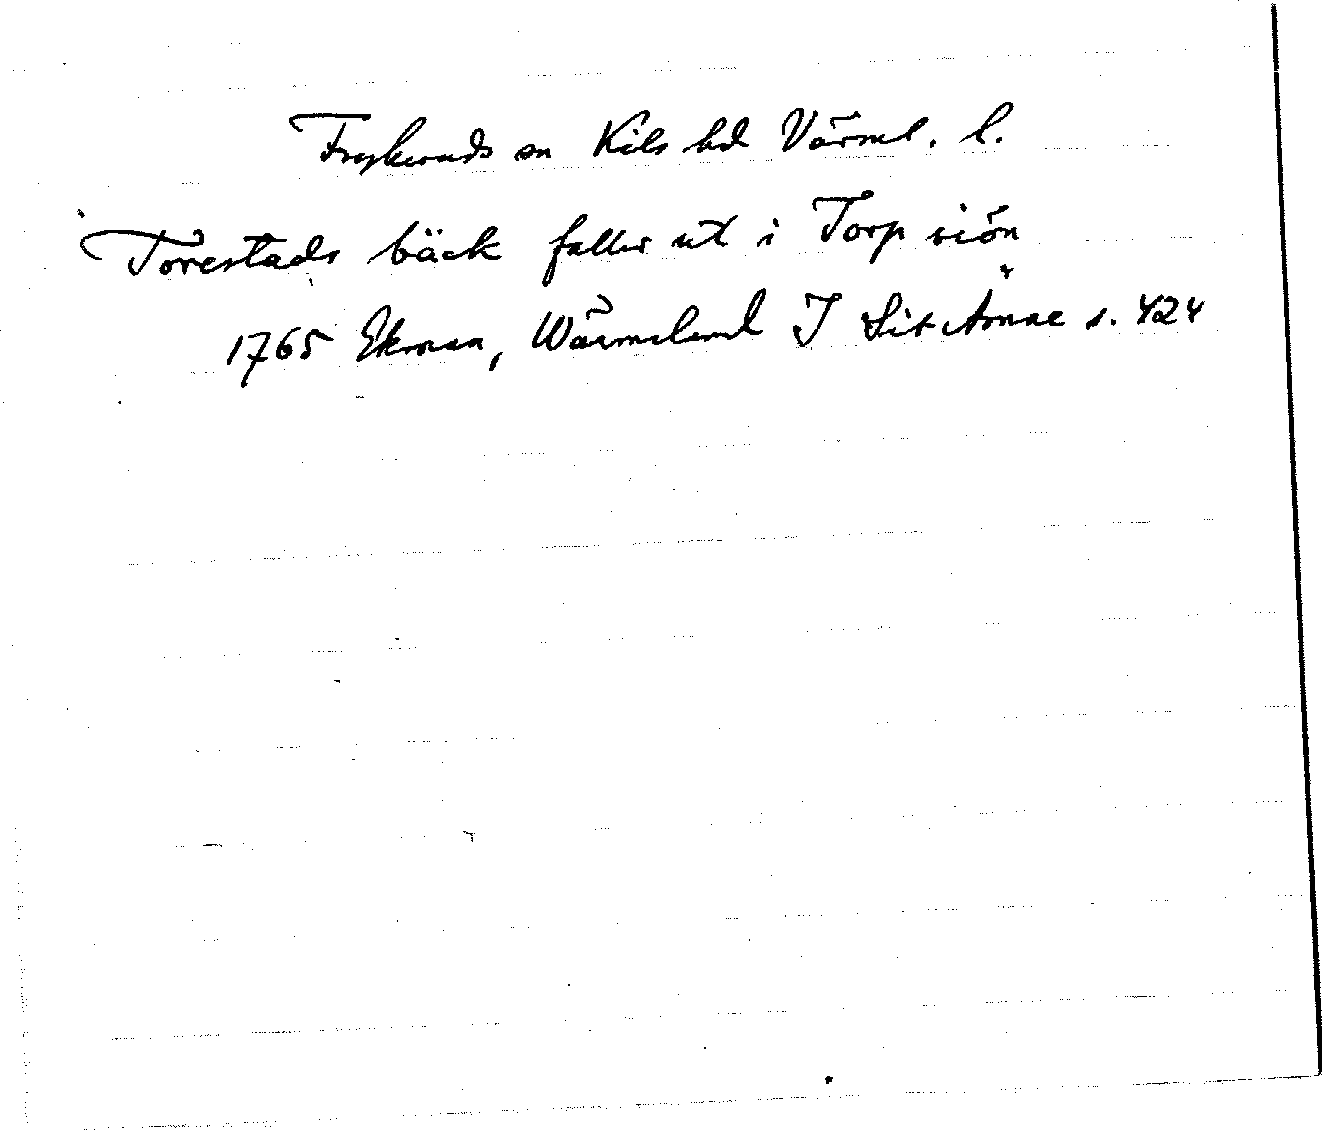 Frykeruds sn Kils hd Värml. l.
Torestads bäck faller ut i Torp siön
1765 Ekman, Wärmeland I s. 424